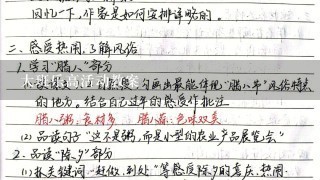 回忆一下,作家是如何安排详略的。
二、感受热闹,了解风俗
1. 学习“腊八”部分
勾画出最能体现“腊八节”风俗特点
的地方。结合自己过年的感受作批注
腊八粥:食材多 腊八蒜:色味双美
(2) 品读句子“这不是粥,而是小型的农业产品展览会”
2. 品读“除夕”部分
(1) 抓关键词“赶做、到处”等感受除夕的喜庆、热闹